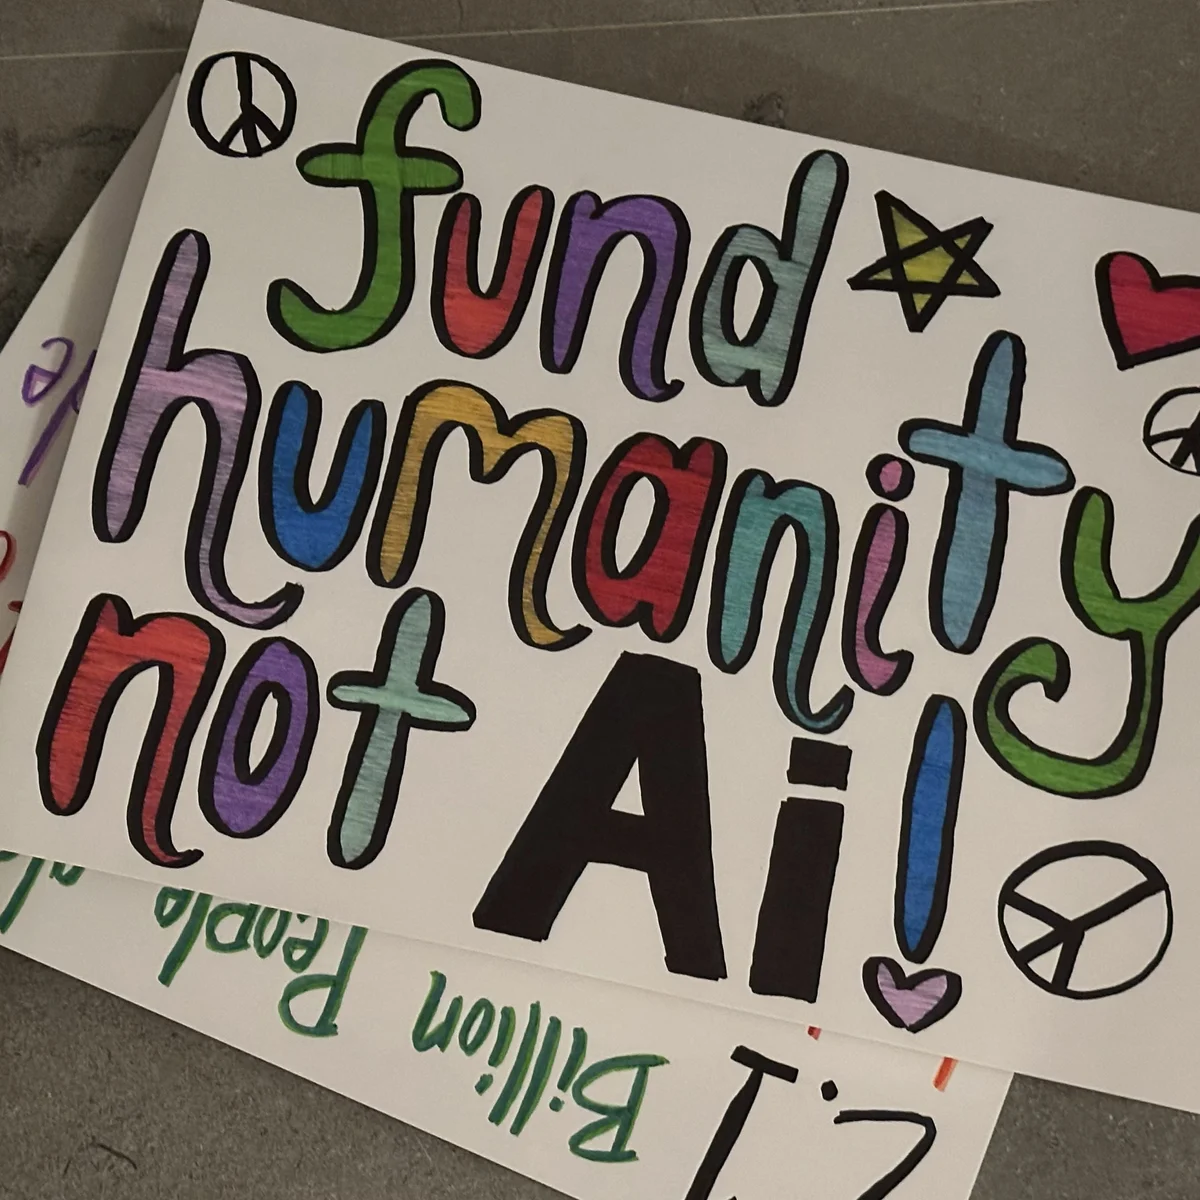 fund
humanity
not Ai!
1.2
Billion People